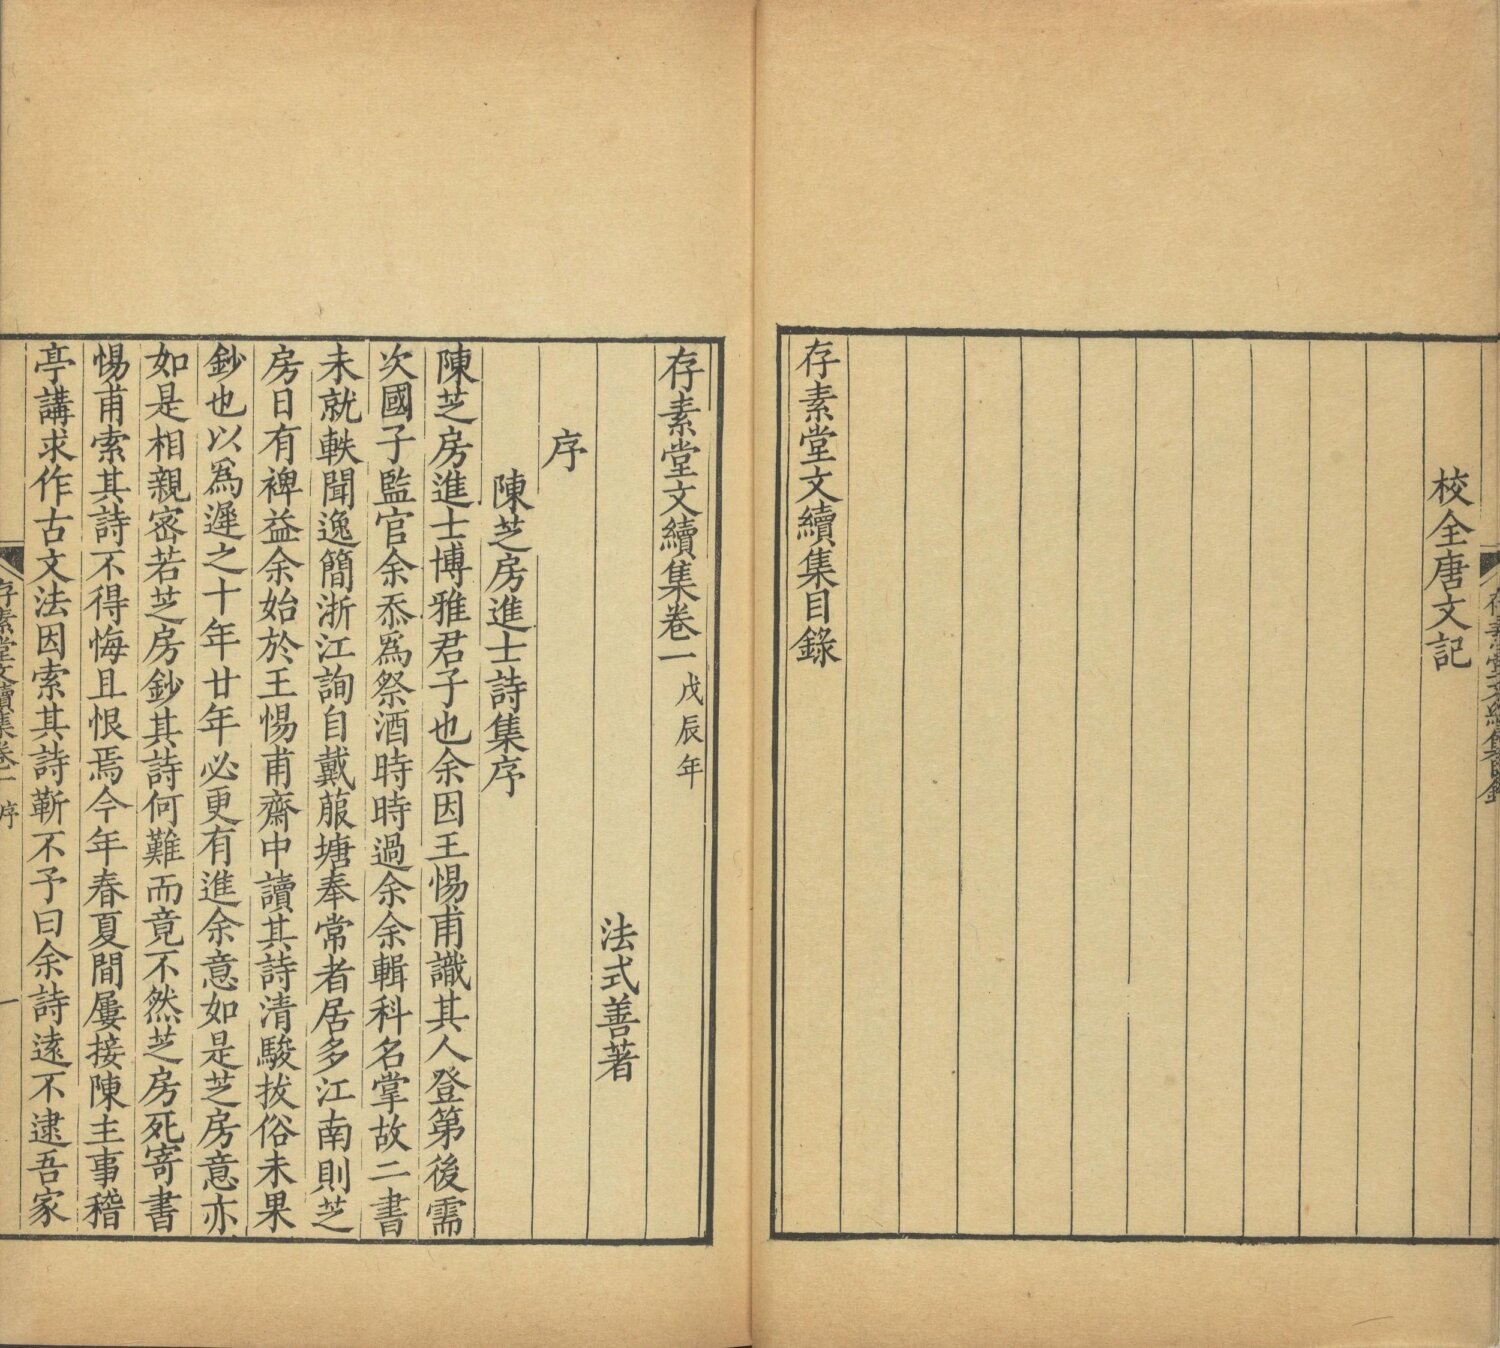 校全唐文記
存素堂文續集目錄
存素堂文續集目錄
存素堂文續集卷一戊辰年
法式善著
序
陳芝房進士詩集序
陳芝房進士博雅君子也余因王惕甫識其人登第後需
次國子監官余忝爲祭酒時時過余余輯科名掌故二書
未就軼聞逸簡浙江詢自戴菔塘奉常者居多江南則芝
房日有裨益余始於王惕甫齋中讀其詩清駿拔俗未果
鈔也以爲遲之十年廿年必更有進余意如是芝房意亦
如是相親密若芝房鈔其詩何難而竟不然芝房死寄書
惕甫索其詩不得悔且恨焉今年春夏間屢接陳主事稽
亭講求作古文法因索其詩靳不予曰余詩遠不逮吾家
存素堂文續集卷一 序 一